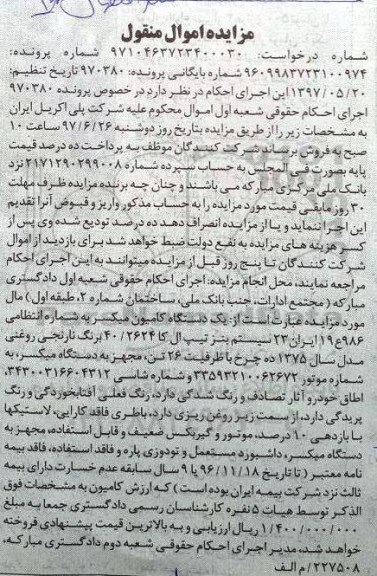 مزایده اموال منقول
شماره درخواست: ۹۷۱۰۴۶۳۷۲۳۴۰۰۰۳۰ شماره پرونده:
۹۶۰۹۹۸۳۷۲۳۱۰۰۹۷۴ شماره بایگانی پرونده: ۹۷۰۳۸۰ تاریخ تنظیم:
۱۳۹۷/۰۵/۲۰ این اجرای احکام در نظر دارد در خصوص پرونده ۹۷۰۳۸۰
اجرای احکام حقوقی شعبه اول اموال محکوم علیه شرکت پلی اکریل ایران
به مشخصات زیر را از طریق مزایده بتاریخ روز دوشنبه ۹۷/۶/۲۶ ساعت ۱۰
صبح به فروش برساند شرکت کنندگان موظف به پرداخت ده درصد قیمت
پایه بصورت فی المجلس به حساب سپرده شماره ۲۱۷۱۲۹۰۲۹۹۰۰۸ نزد
بانک ملی مرکزی مبارکه می باشند و چنان چه برنده مزایده ظرف مهلت
۳۰ روز مابقی قیمت مورد مزایده را به حساب مذکور واریز و قبوض آنرا تقدیم
این اجرا ننماید و یا از مزایده انصراف دهد ده درصد تودیع شده وی پس از
کسر هزینه های مزایده به نفع دولت ضبط خواهد شد برای بازدید از اموال
شرکت کنندگان تا پنج روز قبل از مزایده میتوانند به این اجرای احکام
مراجعه نمایند، محل انجام مزایده: اجرای احکام حقوقی شعبه اول دادگستری
مبارکه (مجتمع ادارات، جنب بانک ملی، ساختمان شماره ۲، طبقه اول) مال
مورد مزایده عبارت است از: یک دستگاه کامیون میکسر به شماره انتظامی
۹۸۶ع۱۹ ایران ۲۳ سیستم بنز تیپ ال کا ۴۰/۲۶۲۴ برنگ نارنجی روغنی
مدل سال ۱۳۷۵ ده چرخ با ظرفیت ۲۶ تن، مجهز به دستگاه میکسر، به
شماره موتور ۳۳۵۹۳۲۱۰۰۶۲۶۷۲ و شماره شاسی ۳۴۳۰۰۳۱۶۶۰۴۳۱۲،
اطاق خودرو آثار تصادف و رنگ شدگی دارد، رنگ فعلی آفتابخوردگی و رنگ
پریدگی دارد، از سمت زیر روغن ریزی دارد، باطری فاقد کارایی، لاستیکها
با بازدهی ۱۰ درصد، موتور و گیربکس ضعیف و قابل استفاده، مجهز به
دستگاه میکسر، داشبورد مستعمل و تودوزی پاره و فاقد استفاده، فاقد بیمه
نامه معتبر (تا تاریخ ۹۶/۱۱/۱۸ با ۹ سال سابقه عدم خسارت دارای بیمه
ثالث نزد شرکت بیمه ایران بوده است) که ارزش کامیون به مشخصات فوق
الذکر توسط هیات ۵ نفره کارشناسان رسمی دادگستری جمعا به مبلغ
۱/۴۰۰/۰۰۰/۰۰۰ ریال ارزیابی و به بالاترین قیمت پیشنهادی فروخته
خواهد شد، مدیر اجرای احکام حقوقی شعبه دوم دادگستری مبارکه،
۲۲۷۵۰۸/م الف